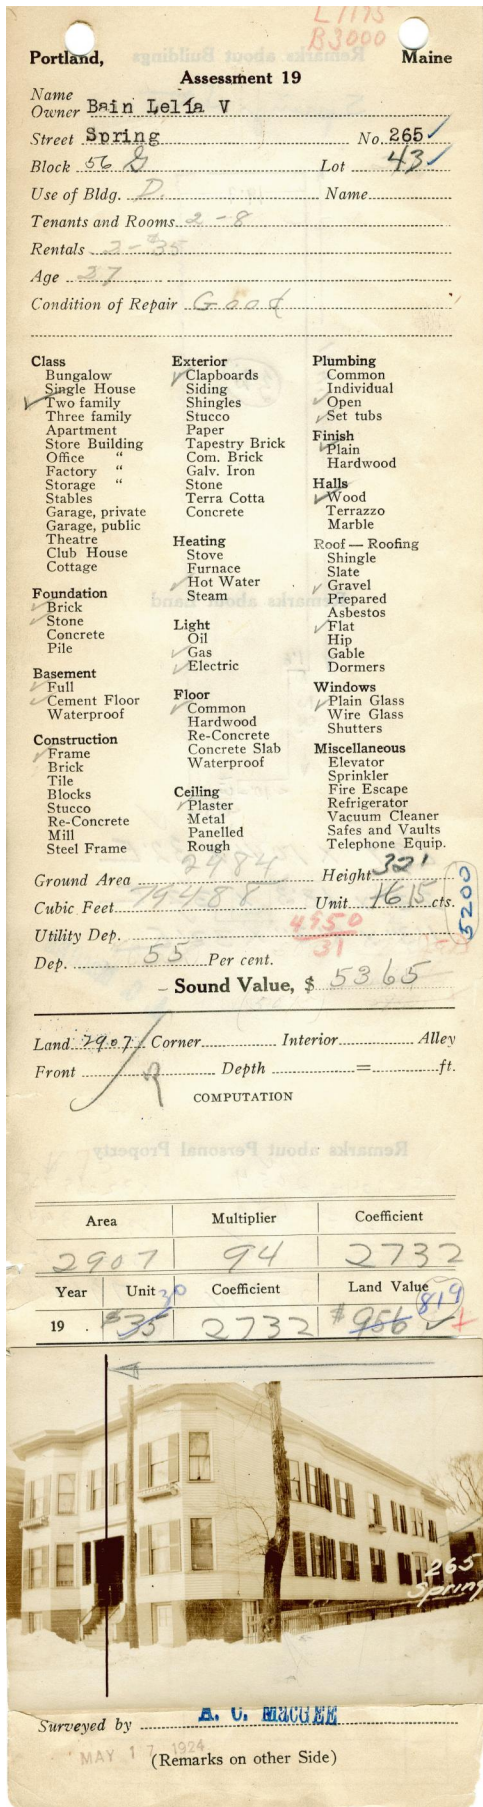 L1195
B3000
Portland, Maine
Assessment 19
Name
Owner Bain Lelia V
Street Spring No. 265
Block 56 G Lot 43
Use of Bldg. D. Name
Tenants and Rooms 2-8
Rentals 2-$35
Age 27
Condition of Repair Good
Class
Bungalow
Single House
Two family
Three family
Apartment
Store Building
Office "
Factory "
Storage "
Stables
Garage, private
Garage, public
Theatre
Club House
Cottage
Foundation
Brick
Stone
Concrete
Pile
Basement
Full
Cement Floor
Waterproof
Construction
Frame
Brick
Tile
Blocks
Stucco
Re-Concrete
Mill
Steel Frame
Exterior
Clapboards
Siding
Shingles
Stucco
Paper
Tapestry Brick
Com. Brick
Galv. Iron
Stone
Terra Cotta
Concrete
Heating
Stove
Furnace
Hot Water
Steam
Light
Oil
Gas
Electric
Floor
Common
Hardwood
Re-Concrete
Concrete Slab
Waterproof
Ceiling
Plaster
Metal
Panelled
Rough
Plumbing
Common
Individual
Open
Set tubs
Finish
Plain
Hardwood
Halls
Wood
Terrazzo
Marble
Roof — Roofing
Shingle
Slate
Gravel
Prepared
Asbestos
Flat
Hip
Gable
Dormers
Windows
Plain Glass
Wire Glass
Shutters
Miscellaneous
Elevator
Sprinkler
Fire Escape
Refrigerator
Vacuum Cleaner
Safes and Vaults
Telephone Equip.
Ground Area 2484 Height 32'
Cubic Feet 79488 Unit 15 cts.
5200
Utility Dep. 4950
31
Dep. 55 Per cent.
Sound Value, $ 5365
Land 2907 Corner Interior Alley
Front Depth = ft.
COMPUTATION
Area Multiplier Coefficient
2907 94 2732
Year Unit 30 Coefficient Land Value 819
19 . $35 2732 $956
265
Spring
Surveyed by A. C. MacGEE
MAY 17 1924
(Remarks on other Side)